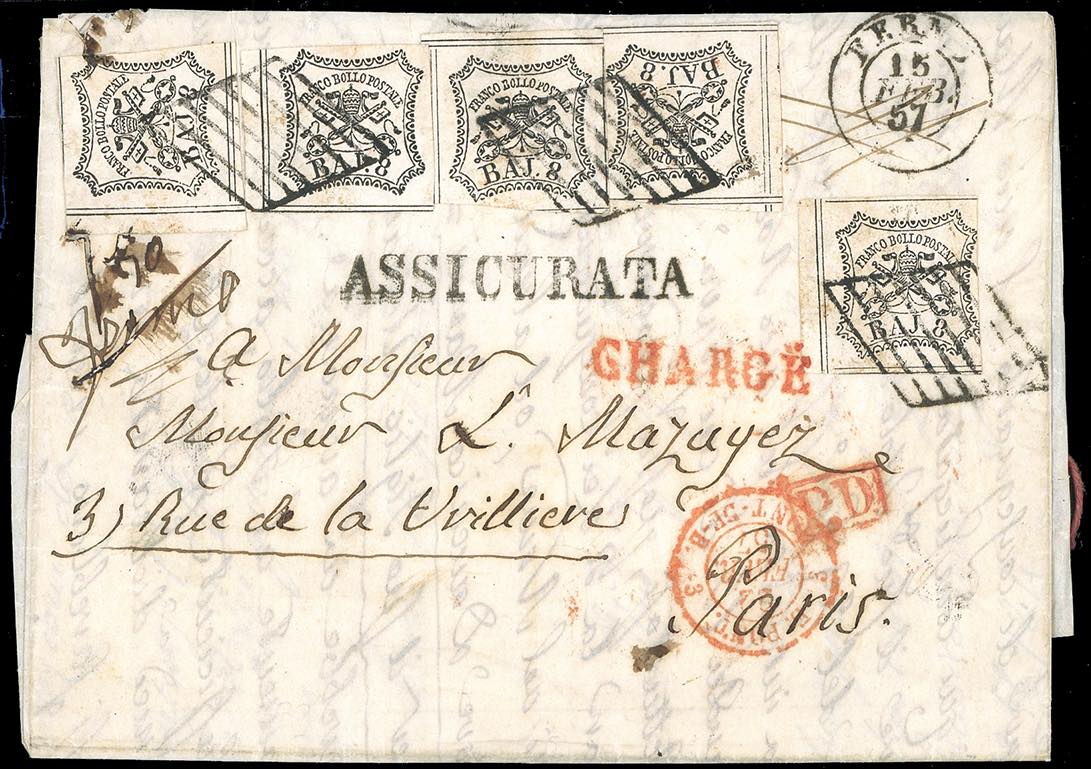 FRANCO BOLLO POSTALE
BAJ. 8
FRANCO BOLLO POSTALE
BAJ. 8
FRANCO BOLLO POSTALE
BAJ. 8
FRANCO BOLLO POSTALE
BAJ. 8
FERMO
15
FEB.
57
FRANCO BOLLO POSTALE
BAJ. 8
50
ASSICURATA
CHARGÉ
a Monsieur
Monsieur L. Mazuyez
3) Rue de la Vrilliere
P.D.
PONT-DE-B.
3
Paris.